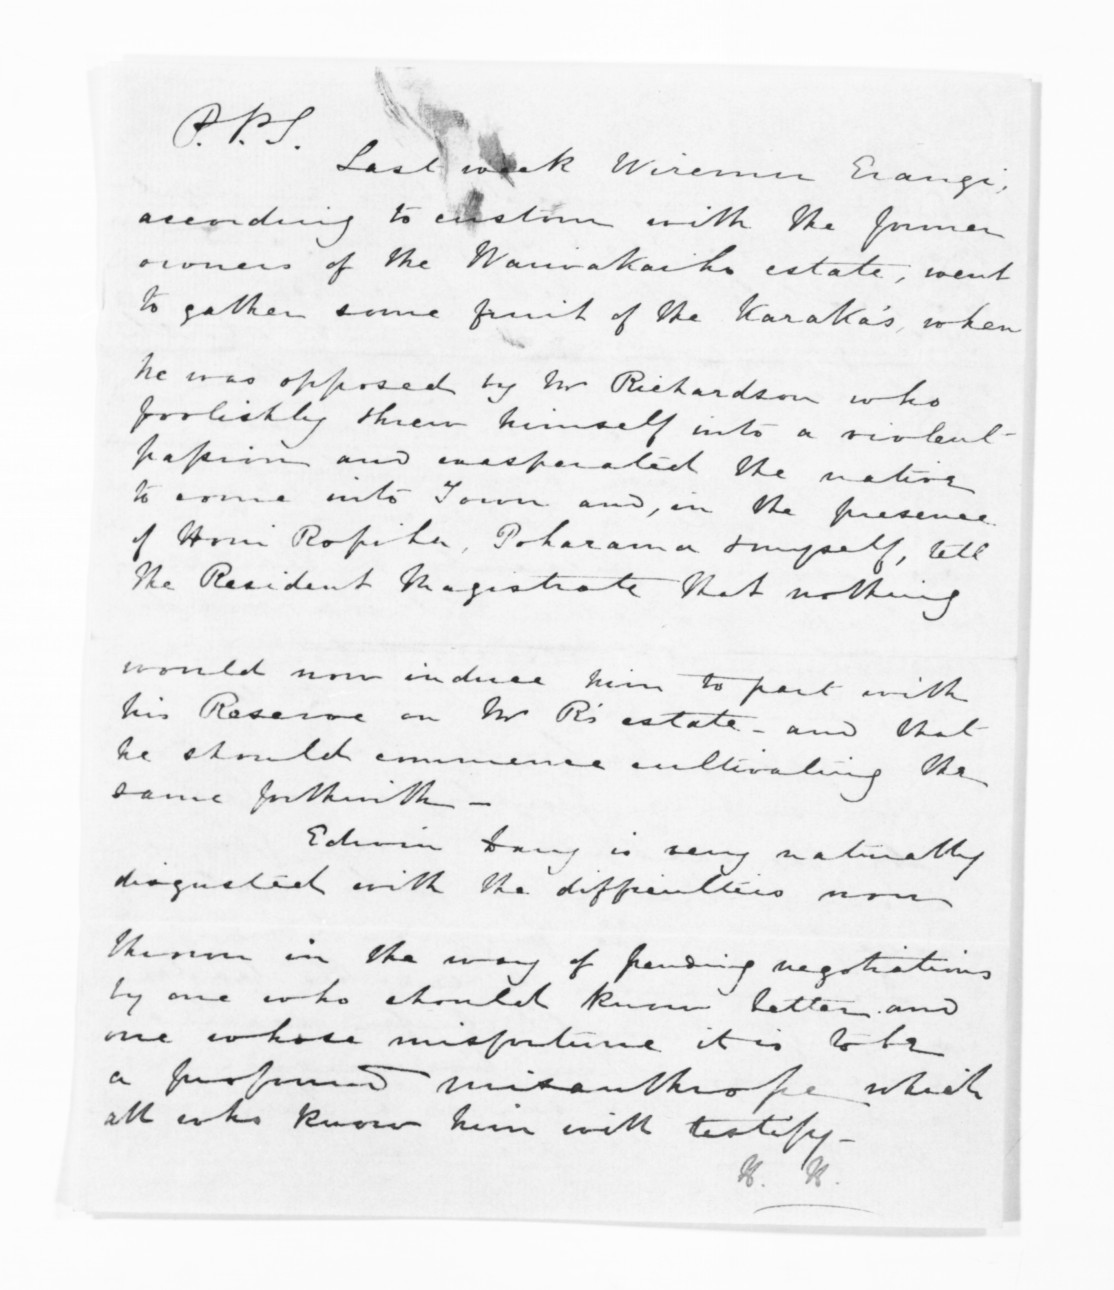 P.P.S.
Last week Wiremu Erangi,
according to custom with the former
owners of the Waiwakaiho estate, went
to gather some fruit of the Karaka's, when
he was opposed by Mr Richardson who
foolishly threw himself into a violent
passion and exasperated the native
to come into Town and, in the presence
of Honi Ropiha, Poharama & myself, tell
the Resident Magistrate that nothing
would now induce him to part with
his Reserve on Mr R's estate - and that
he should commence cultivating the
same forthwith -
Edwin Davy is very naturally
disgusted with the difficulties now
thrown in the way of pending negotiations
by one who should know better and
one whose misfortune it is to be
a profound misanthrope which
all who know him will testify -
H. H.